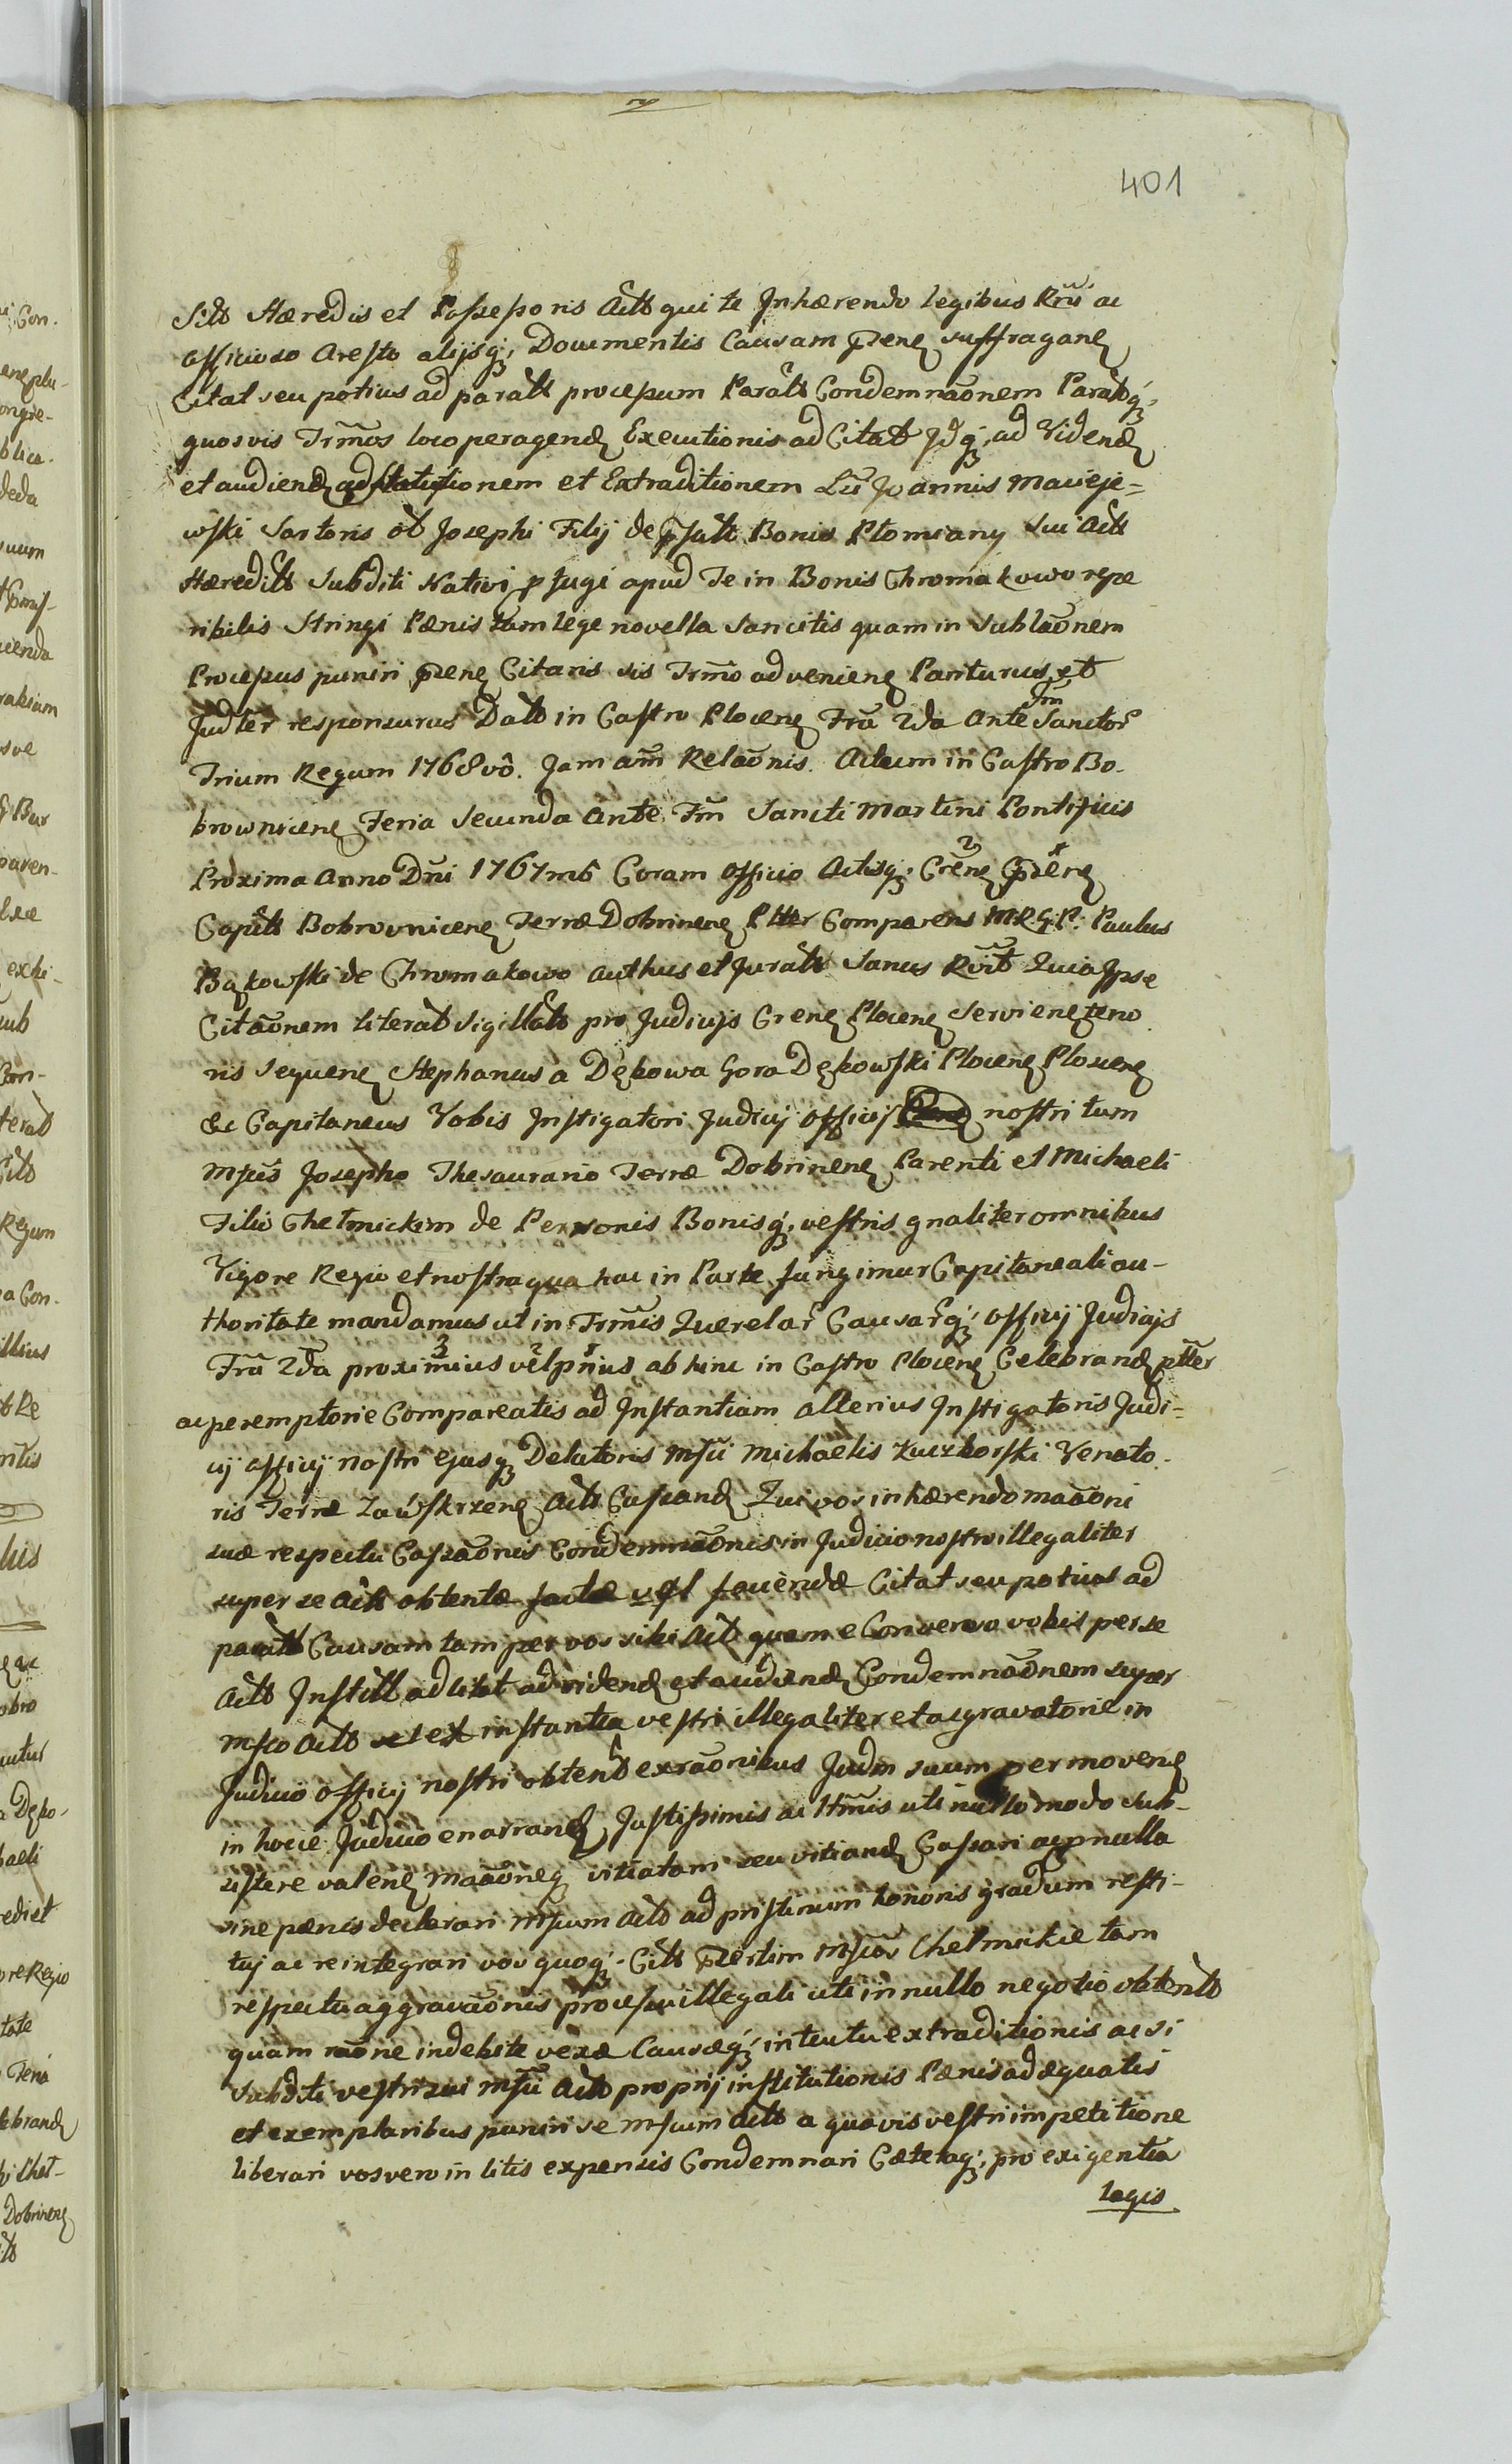 401
Sits Hæredis et Possessoris Acts qui te Inhærendo legibus Rni ac
officioso Aresto alijsq; Documentis Causam pzene suffragane
Citat seu potius ad parats processum Parats Condemnãonem Paratoq;
quosvis Trmos loco peragend Executionis ad Citat Idq; ad Vidend
et audiend ad Statuitionem et Extraditionem Lũ Joannis Macieje=
wski Sartoris et Josephi Filij de psats Bonis Płomiany Sui Acts
Hæredits Subditi Nativi pfugi apud Te in Bonis Chromakowo repe
ribilis Stringi Pænis tam lege novella Sancitis quam in Sublaõnem
Processus puniri pzene Citaris sis Trmo adveniene Pariturus et
Judler responsurus Dats in Castro Plocene Fra 2da Ante Fm Sanctor
Trium Regum 1768vô. Jam am Relaõnis. Actum in Castro Bo-
brownicene Feria Secunda Ante Fm Sancti Martini Pontificis
Proxima Anno Dni 1767mô Coram Officio Actisq; Crene pzene
Capits Bobrovnicene Terræ Dobrinene Ptter Comparens M.R.G.P. Paulus
Bąkowski de Chromakowo Authus et Jurats Sanus Rvit Quia Ipse
Citaõnem literat Sigillats pro Judicijs Crene Plocene Serviene teno
ris Sequene Stephanus a Dękowa Gora Dękowski Plocene Plocene
&c Capitaneus Vobis Instigatori Judicij Officij nostri tum
Mscis Josepho Thesaurario Terræ Dobrinene Parenti et Michaeli
Filio Chełmickim de Personis Bonisq; vestris gnaliter omnibus
Vigore Regio et nostra qua hac in Parte fungimur Capitaneali au-
thoritate mandamus ut in Trmis Querelar Causarq; Officij Judicijs
Fra 2da proximius vel pmius ab hinc in Castro Plocene Celebrand ptter
ac peremptorie Compareatis ad Instantiam alterius Instigatoris Judi=
cij Officij nostri ejusq Delatoris Msci Michaelis Karzborski Venato-
ris Terræ Zawskrzene Acts Cassand Qui vos inhærendo maãoni
suæ respectu Cassaõnis Condemnãonis in Judicio nostro illegaliter
super se Acts obtentæ factæ vel faciendæ Citat seu potius ad
parats Causam tam per vos sibi Acts quam e Converso vobis per se
Acts Instits ad Citat ad vidend et audiend Condemnãonem super
Msco Acts ex instantia vestri illegaliter et acgravatorie in
Judicio Officij nostri obtents ex rãonibus Judm suum permovene
in hocce Judicio enarrand Justissimis ac Ittmis uti nullo modo Sub-
sistere valene Maãoneq vitiatam seu vitiand Cassari acpnulla
sine pænis declarari Mscum Acts ad pristinum honoris gradum resti-
tuj ac reintegrari vos quoq; Cits pzertim Mscos Chełmickie tam
respectu aggravaõnis processu illegali uti in nullo negotio obtents
quam rãone indebite vexæ Causæq; intentu extraditionis ac si
Subditi vestri sui Msci Acts proprij institutionis Pænis adæquatis
et exemplaribus puniri se Mscum Acts a quovis vestri impetitione
liberari vos vero in litis expensis Condemnari Cæteraq; pro exigentia
legis